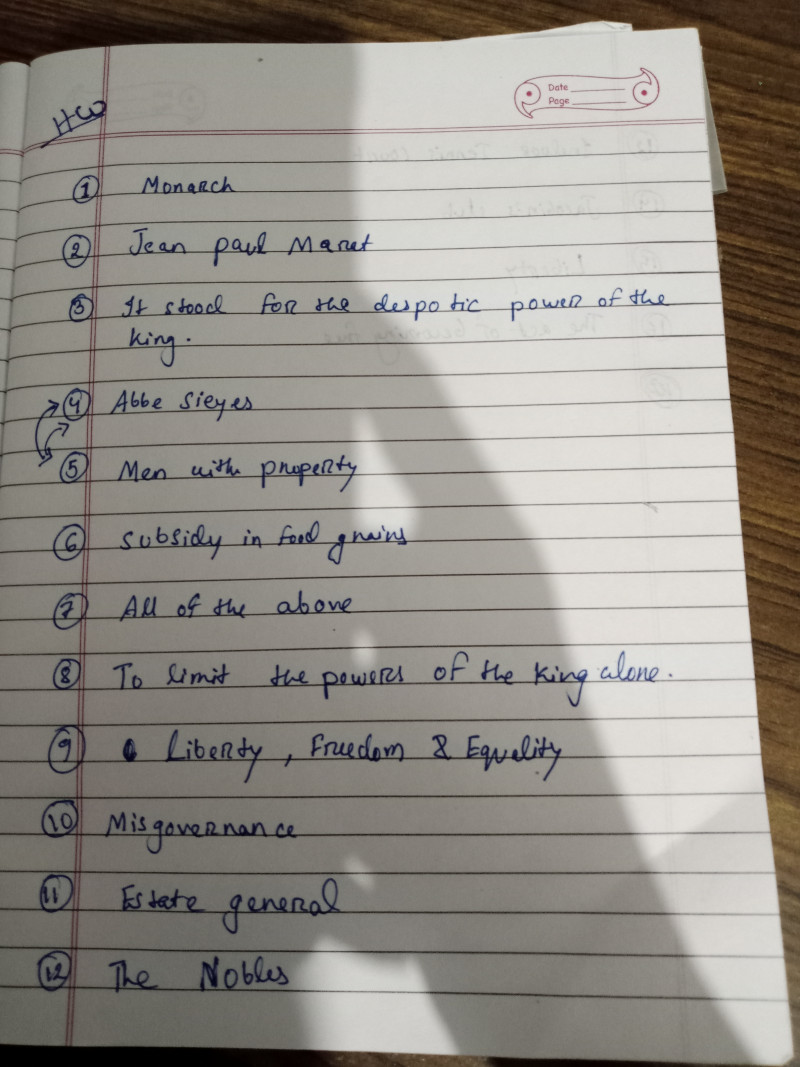 Date
Page
HW
1 Monarch
2 Jean paul Marat
3 It stood for the despotic power of the
king.
4 Abbe Sieyes
5 Men with property
6 Subsidy in food grains
7 All of the above
8 To limit the powers of the king alone.
9 Liberty, Freedom & Equality
10 Misgovernance
11 Estate general
12 The Nobles